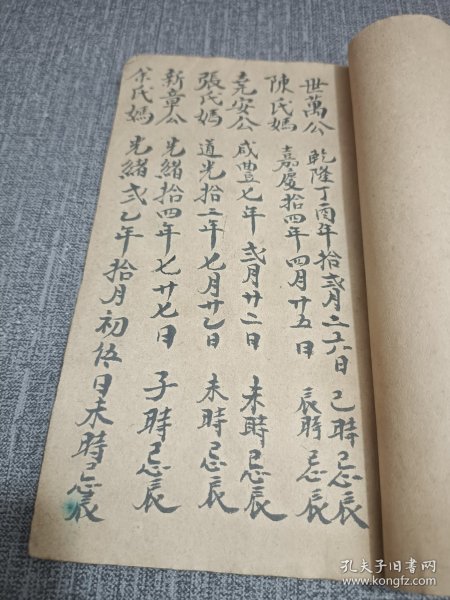 世萬公 乾隆丁酉年拾弍月二六日 巳時忌辰
陳氏媽 嘉慶拾四年四月廿五日 辰時忌辰
堯安公 咸豐七年弍月廿二日 未時忌辰
張氏媽 道光拾二年七月廿乙日 未時忌辰
新章公 光緒拾四年七廿七日 子時忌辰
余氏媽 光緒弍乙年拾月初伍日未時忌辰
孔夫子旧书网
www.kongfz.com